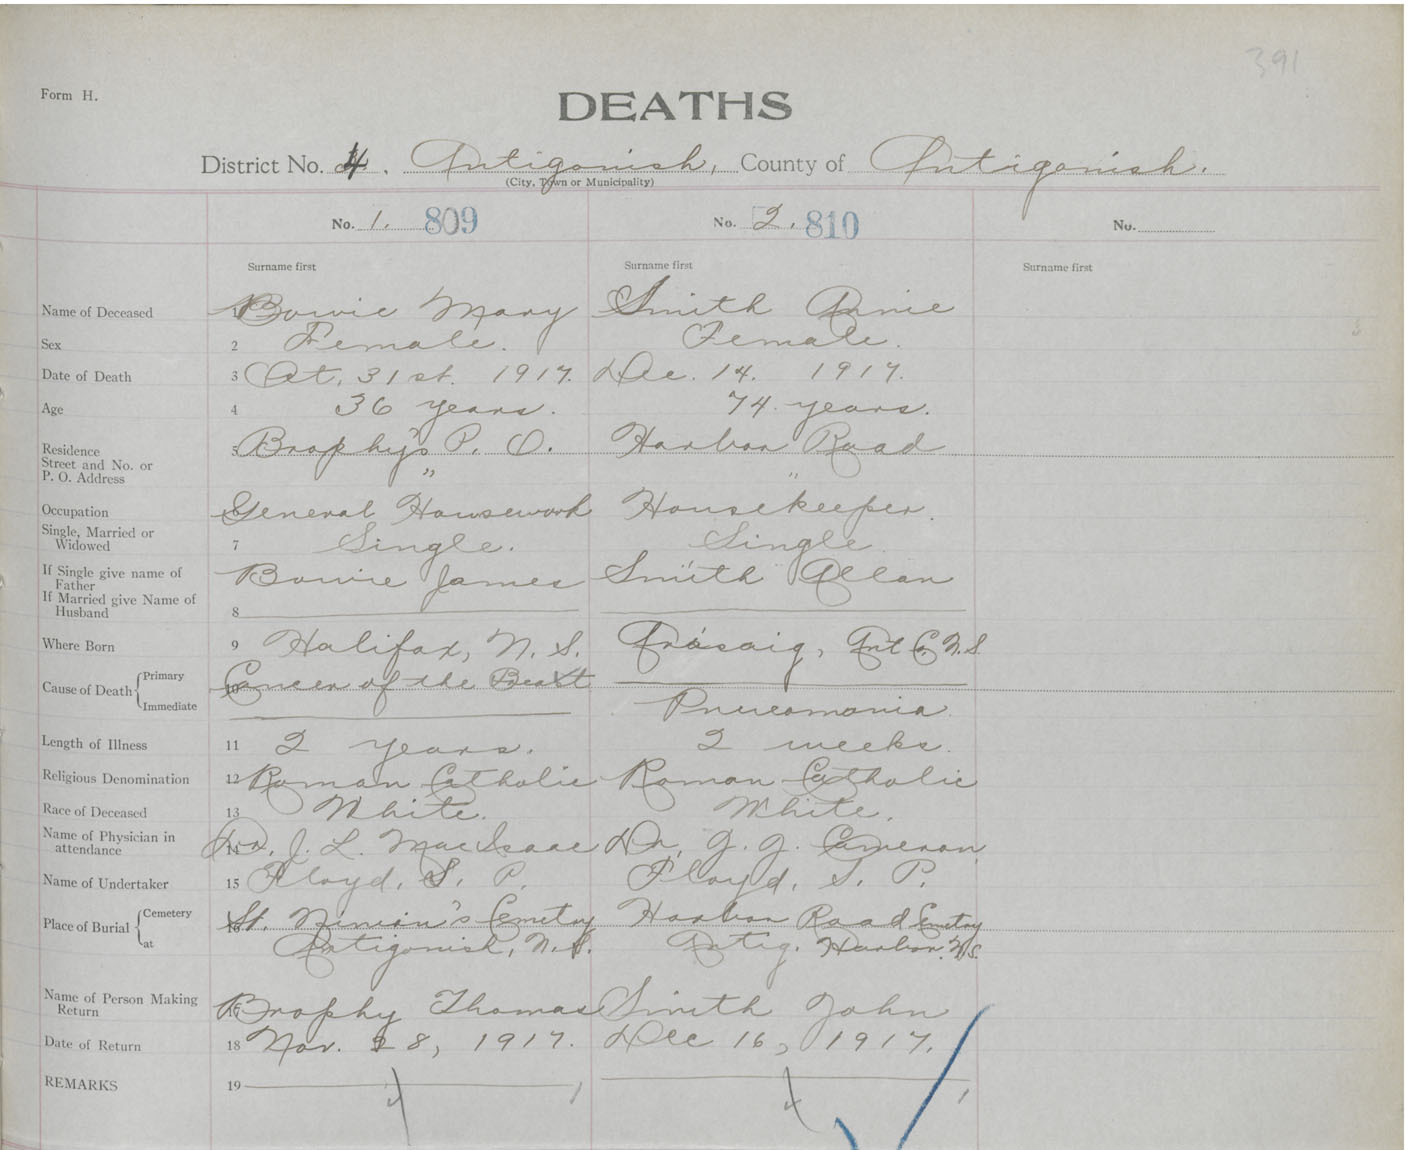 391
Form H.
DEATHS
District No. 4. Antigonish, County of Antigonish.
(City, Town or Municipality)
No. 1. 809 No. 2. 810 No.
Surname first Surname first Surname first
Name of Deceased 1 Bowie Mary Smith Annie
Sex 2 Female. Female.
Date of Death 3 Oct. 31st. 1917. Dec. 14. 1917.
Age 4 36 years. 74 years.
Residence 5 Brophy's P. O. Harbor Road
Street and No. or
P. O. Address " "
Occupation 6 General Housework Housekeeper.
Single, Married or
Widowed 7 Single. Single
If Single give name of Bowie James Smith Allan
Father
If Married give Name of
Husband 8
Where Born 9 Halifax, N. S. Arasaig, Ant Co. N.S
Cause of Death Primary 10 Cancer of the Breast
Immediate Pneumonia
Length of Illness 11 2 years. 2 weeks.
Religious Denomination 12 Roman Catholic Roman Catholic
Race of Deceased 13 White. White.
Name of Physician in
attendance 14 Dr. J. L. MacIsaac Dr. G. G. Cameron
Name of Undertaker 15 Floyd, S. P. Floyd, S. P.
Place of Burial Cemetery 16 St. Ninian's Cemetry Harbor Road Cemetry
at Antigonish, N. S. Antig. Harbor. N.S.
Name of Person Making
Return 17 Brophy Thomas Smith John
Date of Return 18 Nov. 28, 1917. Dec 16, 1917.
REMARKS 19